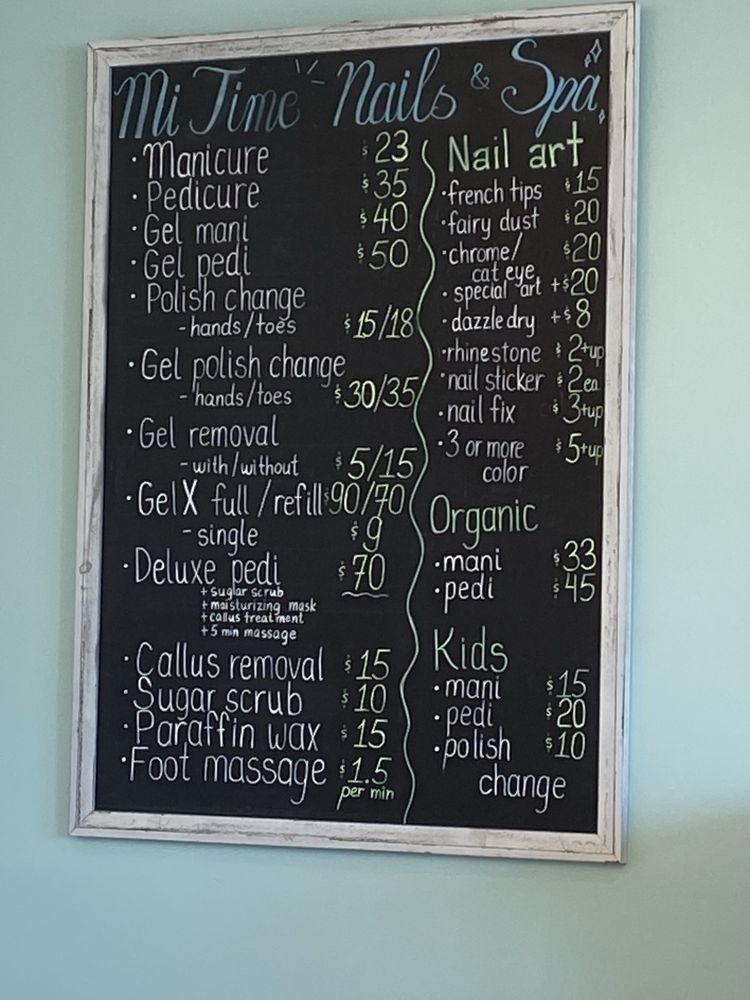 Mi Time Nails & Spa
· Manicure $23
· Pedicure $35
· Gel mani $40
· Gel pedi $50
· Polish change
- hands/toes $15/18
· Gel polish change
- hands/toes $30/35
· Gel removal
- with/without $5/15
· Gel X full/refill $90/70
- single $9
· Deluxe pedi $70
+ sugar scrub
+ moisturizing mask
+ callus treatment
+ 5 min massage
· Callus removal $15
· Sugar scrub $10
· Paraffin wax $15
· Foot massage $1.5
per min
Nail art
· french tips $15
· fairy dust $20
· chrome/ $20
cat eye
· special art +$20
· dazzle dry +$8
· rhinestone $2+up
· nail sticker $2ea
· nail fix $3+up
· 3 or more $5+up
color
Organic
· mani $33
· pedi $45
Kids
· mani $15
· pedi $20
· polish $10
change